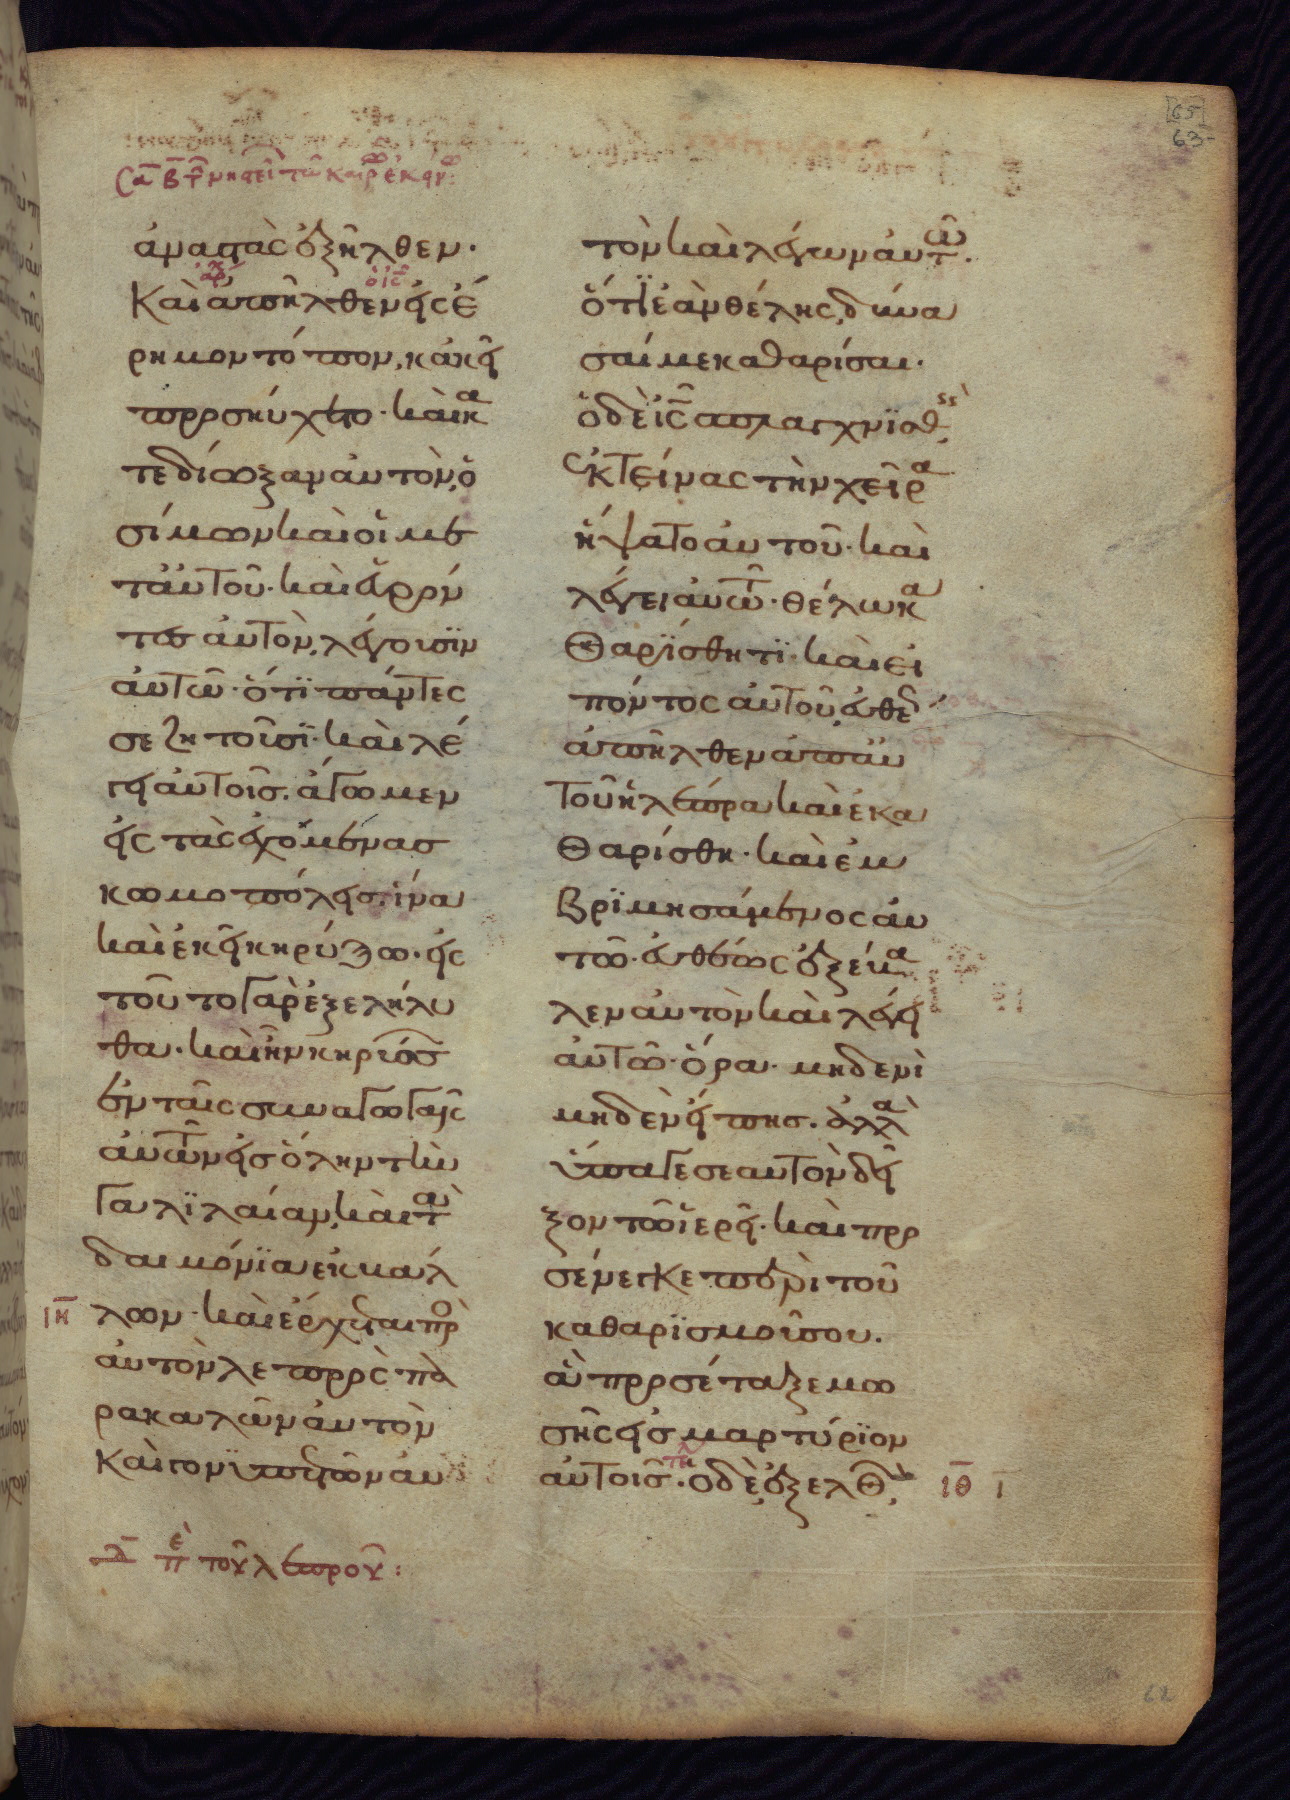 ἀναστὰς ἐξῆλθεν·
Καὶ ἀπῆλθεν εἰς ἔ
ρημον τόπον, κἀκεῖ
προσηύχετο· καὶ κα
τεδίωξαν αὐτὸν, ὁ
σίμων καὶ οἱ με
τ' αὐτοῦ· καὶ εὑρόν
τες αὐτὸν, λέγουσϊν
αὐτῶ· ὅτϊ πάντες
σε ζητοῦσϊ· καὶ λέ
γει αὐτοῖς· ἄγωμεν
εἰς τὰς ἐχομένας
κωμοπόλεις· ἵνα
καὶ ἐκεῖ κηρύξω· εἰς
τοῦτο γὰρ ἐξελήλυ
θα· καὶ ἦν κηρύσσ
ἐν ταῖς συναγωγαῖς
αὐτῶν εἰς ὅλην τὴν
Γαλϊλαίαν, καὶ τὰ
δαιμόνϊα ἐκβάλ
ιη λων· καὶ ἔρχεται πρὸ
αὐτὸν λεπρὸς πα
ρακαλῶν αὐτὸν
Καὶ γονϋπετῶν αὐ
δ π τοῦ λεπροῦ:
τὸν καὶ λέγων αὐτῶ.
ὅτϊ ἐὰν θέλης, δύνα
σαί με καθαρίσαι·
ὁ δὲ ις σπλαγχνϊσθ
ἐκτείνας τὴν χεῖρα
ἥψατο αὐτοῦ· καὶ
λέγει αὐτῶ· θέλω κα
θαρϊσθητϊ· καὶ εἰ
πόντος αὐτοῦ, εὐθέ
ἀπῆλθεν ἀπ' αὐ
τοῦ ἡ λέπρα καὶ ἐκα
θαρίσθη· καὶ ἐμ
βρϊμησάμενος αὐ
τῶ· εὐθέως ἐξέβα
λεν αὐτὸν καὶ λέγει
αὐτῶ· ὅρα· μηδενὶ
μηδὲν εἴπης· ἀλλὰ
ὕπαγε σεαυτὸν δεῖ
ξον τῶ ἱερεῖ· καὶ προ
σένεγκε περὶ τοῦ
καθαρϊσμοῦ σου.
ἃ προσέταξε μω
σῆς εἰς μαρτύρϊον
αὐτοῖς· ὁ δὲ, ἐξελθ ιθ ι